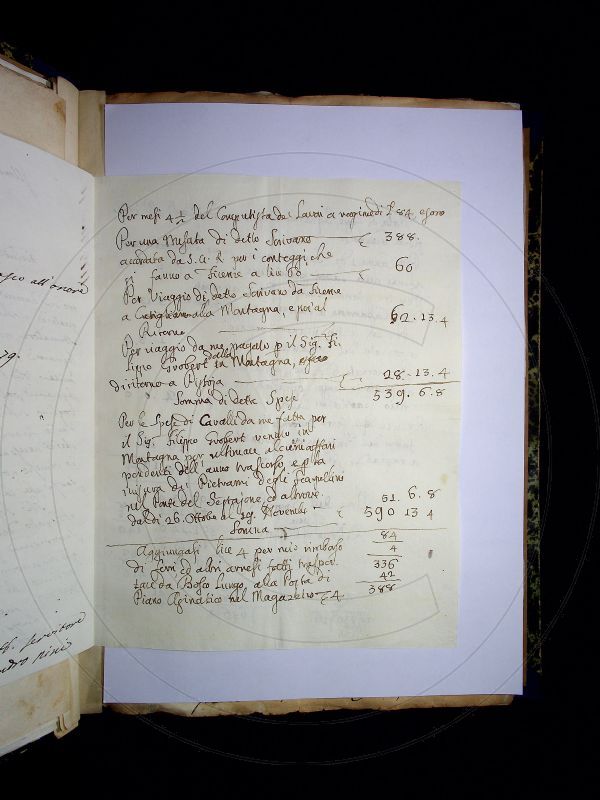 sco all' onore
79.
Servitore
Pini
Per mesi 4 1/2 del Computista dei Lavori a ragione di £ 84 e sono
Per una Mesata di detto Scrivano 388.
accordata da S. A. R. per i conteggi che
si fanno a Firenze a lire 60 60
Per Viaggio di detto Scrivano da Firenze
a Cutigliano alla Montagna, e poi al
Ritorno 62. 13. 4
Per viaggio da me pagato p il Sig. Fi
lippo Grobert dalla Montagna,
di ritorno a Pistoja 28. 13. 4
Somma di dette Spese 539. 6. 8
Per le Spese di Cavalli da me fatta per
il Sig. Filippo Grobert venuto in
Montagna per ultimare alcuni affari
pendenti dell' anno trascorso, e p la
misura di Pietrami degli Scarpellini
nel Ponte del Sestajone, ed altrove
dal dì 26 Ottobre al 29 Novembre 51. 6. 8
590 13 4
Somma
Aggiungasi lire 4 per mio rimborso
di ferri ed altri arnesi fatti traspor
tare da Bosco Lungo, alla Posta di
Piano Asinatico nel Magazzino 4
84
4
336
42
388